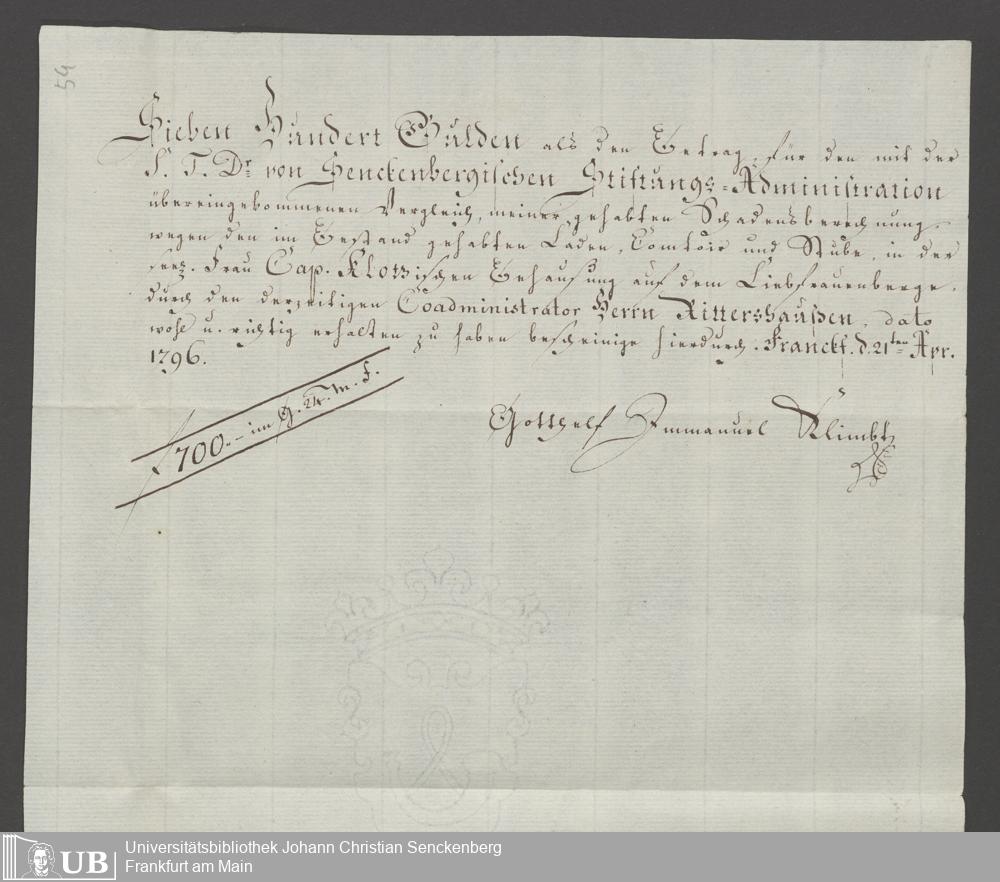 59
Sieben Hundert Gulden als den Betrag, für den mit der
S. T. Dr. von Senckenbergischen Stiftungs-Administration
übereingekommenen Vergleich, meiner gehabten Schadensberechnung
wegen den im Bestand gehabten Laden, Comtoir und Stube, in der
seel. Frau Cap. Klotzischen Behausung auf dem Liebfrauenberge,
durch den derzeitigen Coadministrator Herrn Rittershaußen, dato
wohl u. richtig erhalten zu haben bescheinige hierdurch. Franckf. d. 21ten Apr.
1796.
f 700.- im f. 24. m. f.
Gotthelf Immanuel Klimbt
Universitätsbibliothek Johann Christian Senckenberg
Frankfurt am Main
UB